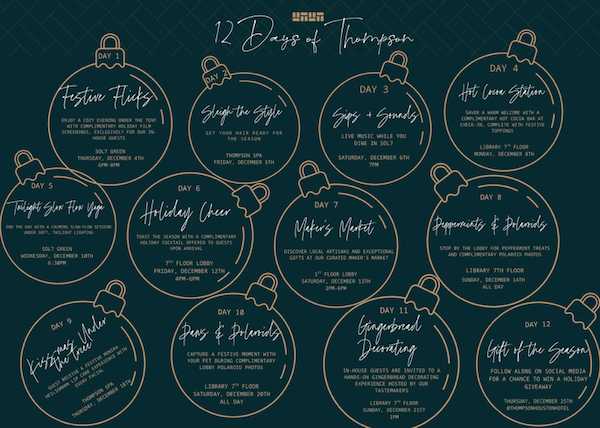 12 Days of Thompson
DAY 1
Festive Flicks
ENJOY A COZY EVENING UNDER THE TENT
WITH COMPLIMENTARY HOLIDAY FILM
SCREENINGS, EXCLUSIVELY FOR OUR IN-
HOUSE GUESTS
SOLT GREEN
THURSDAY, DECEMBER 4TH
6PM-9PM
DAY 2
Sleigh the Style
GET YOUR HAIR READY FOR
THE SEASON
THOMPSON SPA
FRIDAY, DECEMBER 5TH
DAY 3
Sips + Sounds
LIVE MUSIC WHILE YOU
DINE IN SOLT
SATURDAY, DECEMBER 6TH
7PM
DAY 4
Hot Cocoa Station
SAVOR A WARM WELCOME WITH A
COMPLIMENTARY HOT COCOA BAR AT
CHECK-IN, COMPLETE WITH FESTIVE
TOPPINGS
LIBRARY 7TH FLOOR
MONDAY, DECEMBER 8TH
DAY 5
Twilight Slow Flow Yoga
END THE DAY WITH A CALMING SLOW-FLOW SESSION
UNDER SOFT, TWILIGHT LIGHTING
SOLT GREEN
WEDNESDAY, DECEMBER 10TH
6:30PM
DAY 6
Holiday Cheer
TOAST THE SEASON WITH A COMPLIMENTARY
HOLIDAY COCKTAIL OFFERED TO GUESTS
UPON ARRIVAL
7TH FLOOR LOBBY
FRIDAY, DECEMBER 12TH
4PM-6PM
DAY 7
Maker's Market
DISCOVER LOCAL ARTISANS AND EXCEPTIONAL
GIFTS AT OUR CURATED MAKER'S MARKET
1ST FLOOR LOBBY
SATURDAY, DECEMBER 13TH
2PM-6PM
DAY 8
Peppermints & Polaroids
STOP BY THE LOBBY FOR PEPPERMINT TREATS
AND COMPLIMENTARY POLAROID PHOTOS
LIBRARY 7TH FLOOR
SUNDAY, DECEMBER 14TH
ALL DAY
DAY 9
Kissmas Under
the Tree
GUEST RECEIVE A FESTIVE HOLIDAY
LIP CARE EXPERIENCE WITH
EVERY FACIAL
THOMPSON SPA
THURSDAY, DECEMBER 18TH
DAY 10
Paws & Polaroids
CAPTURE A FESTIVE MOMENT WITH
YOUR PET DURING COMPLIMENTARY
LOBBY POLAROID PHOTOS
LIBRARY 7TH FLOOR
SATURDAY, DECEMBER 20TH
ALL DAY
DAY 11
Gingerbread
Decorating
IN-HOUSE GUESTS ARE INVITED TO A
HANDS-ON GINGERBREAD DECORATING
EXPERIENCE HOSTED BY OUR
TASTEMAKERS
LIBRARY 7TH FLOOR
SUNDAY, DECEMBER 21ST
1PM
DAY 12
Gift of the Season
FOLLOW ALONG ON SOCIAL MEDIA
FOR A CHANCE TO WIN A HOLIDAY
GIVEAWAY
THURSDAY, DECEMBER 25TH
@THOMPSONHOUSTONHOTEL